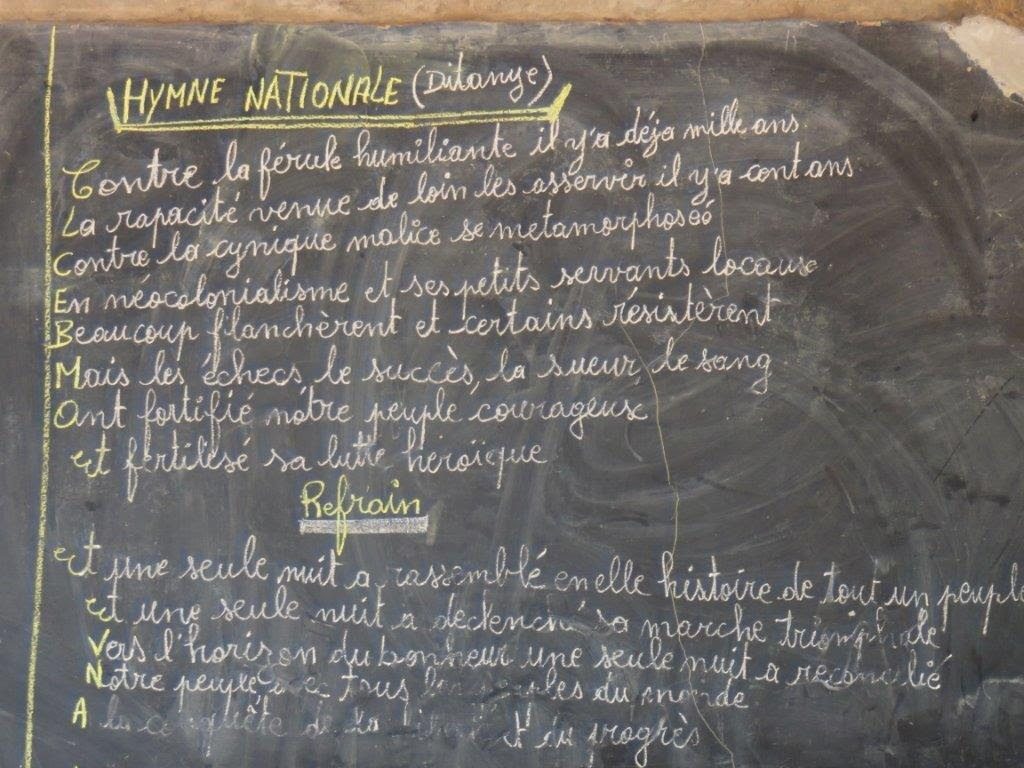 HYMNE NATIONALE (Ditanye)
Contre la férule humiliante il y'a déja mille ans
La rapacité venue de loin les asservir il y'a cent ans
Contre la cynique malice se metamorphoséé
En néocolonialisme et ses petits servants locaux.
Beaucoup flanchèrent et certains résistèrent
Mais les échecs, le succès, la sueur, le sang
Ont fortifié nôtre peuple courageux
et fertilisé sa lutte heroïque
Refrain
et une seule nuit a rassemblé en elle histoire de tout un peuple
et une seule nuit a déclenché sa marche triomphale
Vers l'horizon du bonheur une seule nuit a réconcilié
Nôtre peuple avec tous les peuples du monde
A la conquête de la et du progrès